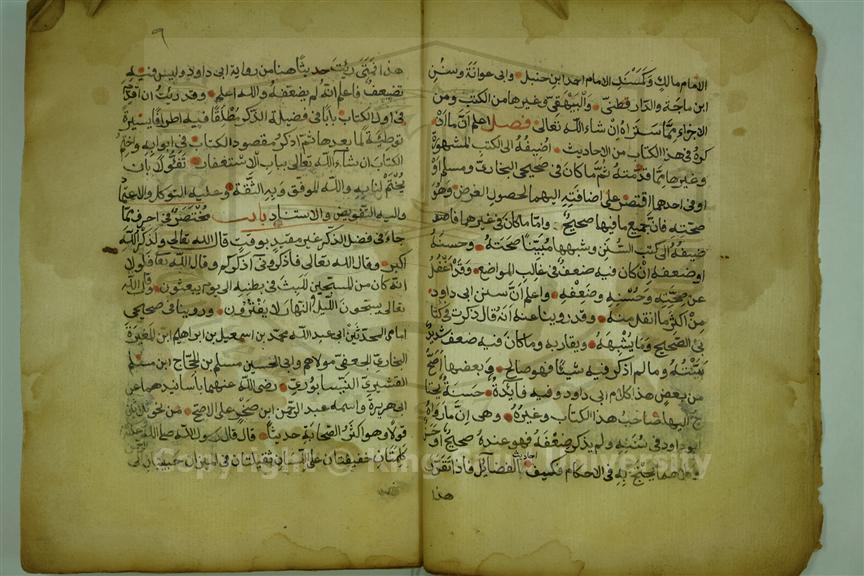 الامام مالك وكمسند الامام احمد ابن حنبل وابي عوانة وسنن
ابن ماجة والدار قطني والبيهقي وغيرها من الكتب ومن
الاجزاء مما ستراه ان شاء الله تعالى فصل اعلم ان ما اذ
كره في هذا الكتاب من الاحاديث اضيفه الى الكتب المشهورة
وغيرها مما قدمته ثم ما كان في صحيحي البخاري ومسلم او
او في احدهما اقتصر على اضافته اليهما لحصول الغرض وهو
صحته فان جميع ما فيها صحيح واما ما كان في غيرها فا
ضيفه الى كتب السنن وشبهها مبينا صحته وحسنه
او ضعفه ان كان فيه ضعف في غالب المواضع وقد اغفل
عن صحته وحسنه وضعفه واعلم ان سنن ابي داود
من اكثر ما انقل منه وقد روينا عنه انه قال ذكرت في كتا
بي الصحيح وما يشبهه ويقاربه وما كان فيه ضعف شديد
بينته وما لم اذكر فيه شيئا فهو صالح وبعضها اصح
من بعض هذا كلام ابي داود وفيه فائدة حسنة يحتا
ج اليها صاحب هذا الكتاب وغيره وهي ان ما رواه
ابو داود في سننه ولم يذكر ضعفه فهو عنده صحيح او حسن
وكلاهما يحتج به في الاحكام فكيف احاديث الفضايل فاذا تقرر
هذا
٩
هذا فمتى رايت حديثا هنا من رواية ابي داود وليس فيه
تضعيف فاعلم انه لم يضعفه والله اعلم وقد رايت ان اقدم
في اول الكتاب بابا في فضيلة الذكر مطلقا فيه اطرافا يسيرة
توطئة لما بعدها ثم اذكر مقصود الكتاب في ابوابه واختم
الكتاب ان شاء الله تعالى بباب الاستغفار تفؤلا بان
يختم لنا به والله الموفق وبه الثقة وعليه التوكل والاعتماد
واليه التفويض والاستناد باب مختصر في احرف مما
جاء في فضل الذكر غير مقيد بوقت قال الله تعالى ولذكر الله
اكبر وقال الله تعالى فاذكروني اذكركم وقال الله تعالى فلولا
انه كان من المسبحين للبث في بطنه الى يوم يبعثون وقال الله
تعالى يسبحون الليل والنهار لا يفترون وروينا في صحيحي
امامي المحدثين ابي عبد الله محمد بن اسمعيل بن ابراهيم ابن المغيرة
البخاري الجعفي مولاهم وابي الحسين مسلم بن الحجاج ابن مسلم
القشيري النيسابوري رضي الله عنهما باسانيدهما عن
ابي هريرة واسمه عبد الرحمن ابن صخر على الاصح من نحو ثلاثين
قولا وهو اكثر الصحابة حديثا قال قال رسول الله صلى الله عليه
كلمتان خفيفتان على اللسان ثقيلتان في الميزان حبيبتان الى
Copyright © King Saud University